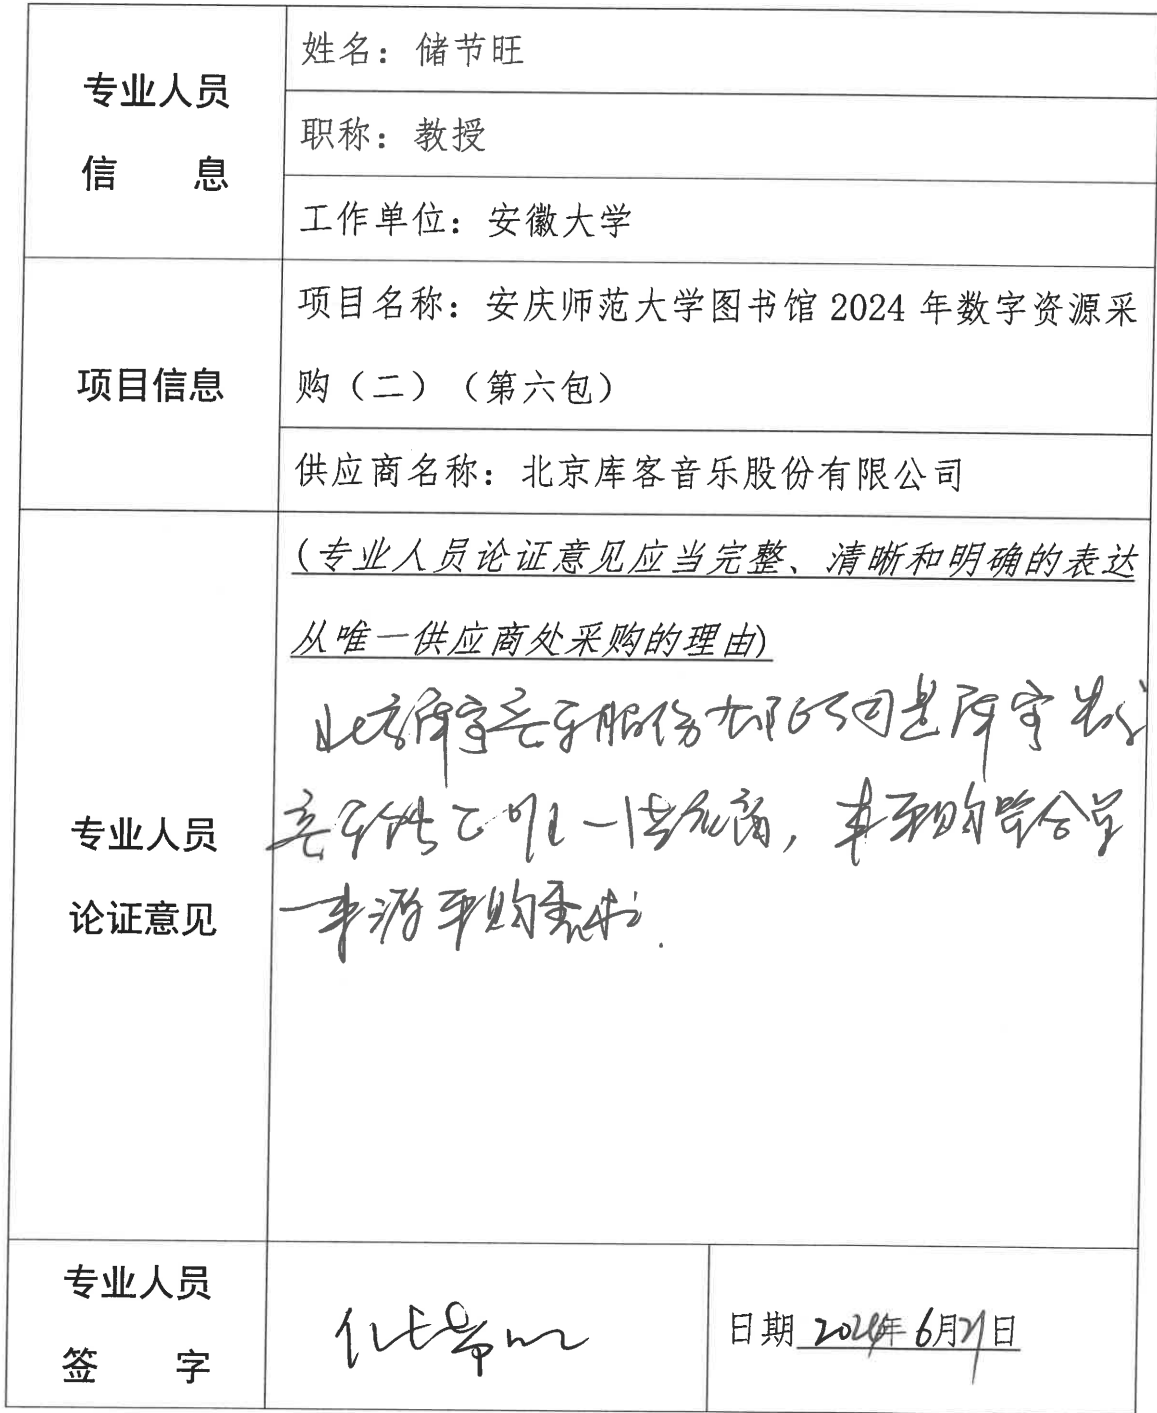 专业人员
信 息
姓名：储节旺
职称：教授
工作单位：安徽大学
项目信息
项目名称：安庆师范大学图书馆 2024 年数字资源采
购（二）（第六包）
供应商名称：北京库客音乐股份有限公司
专业人员
论证意见
(专业人员论证意见应当完整、清晰和明确的表达
从唯一供应商处采购的理由)
北京库客音乐股份有限公司是库客数字
音乐 唯一供应商，本采购符合单
一来源采购要求.
专业人员
签 字
储节旺
日期 2024年 6月21日